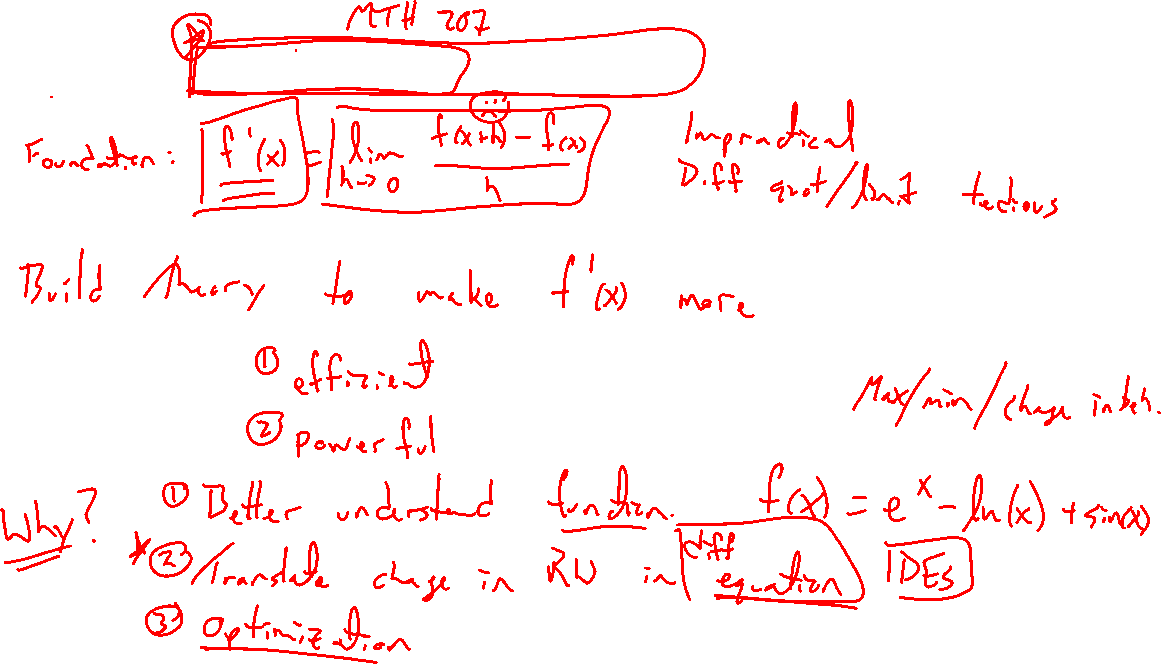 MTH 207
Foundation: f'(x) = lim h→0 f(x+h) - f(x) / h
Impractical
Diff quot/limit tedious
Build theory to make f'(x) more
① efficient
② powerful
Max/min/change in beh.
Why? ① Better understand function. f(x) = e^x - ln(x) + sin(x)
* ② Translate chage in RW in diff equation IDEs
③ Optimization